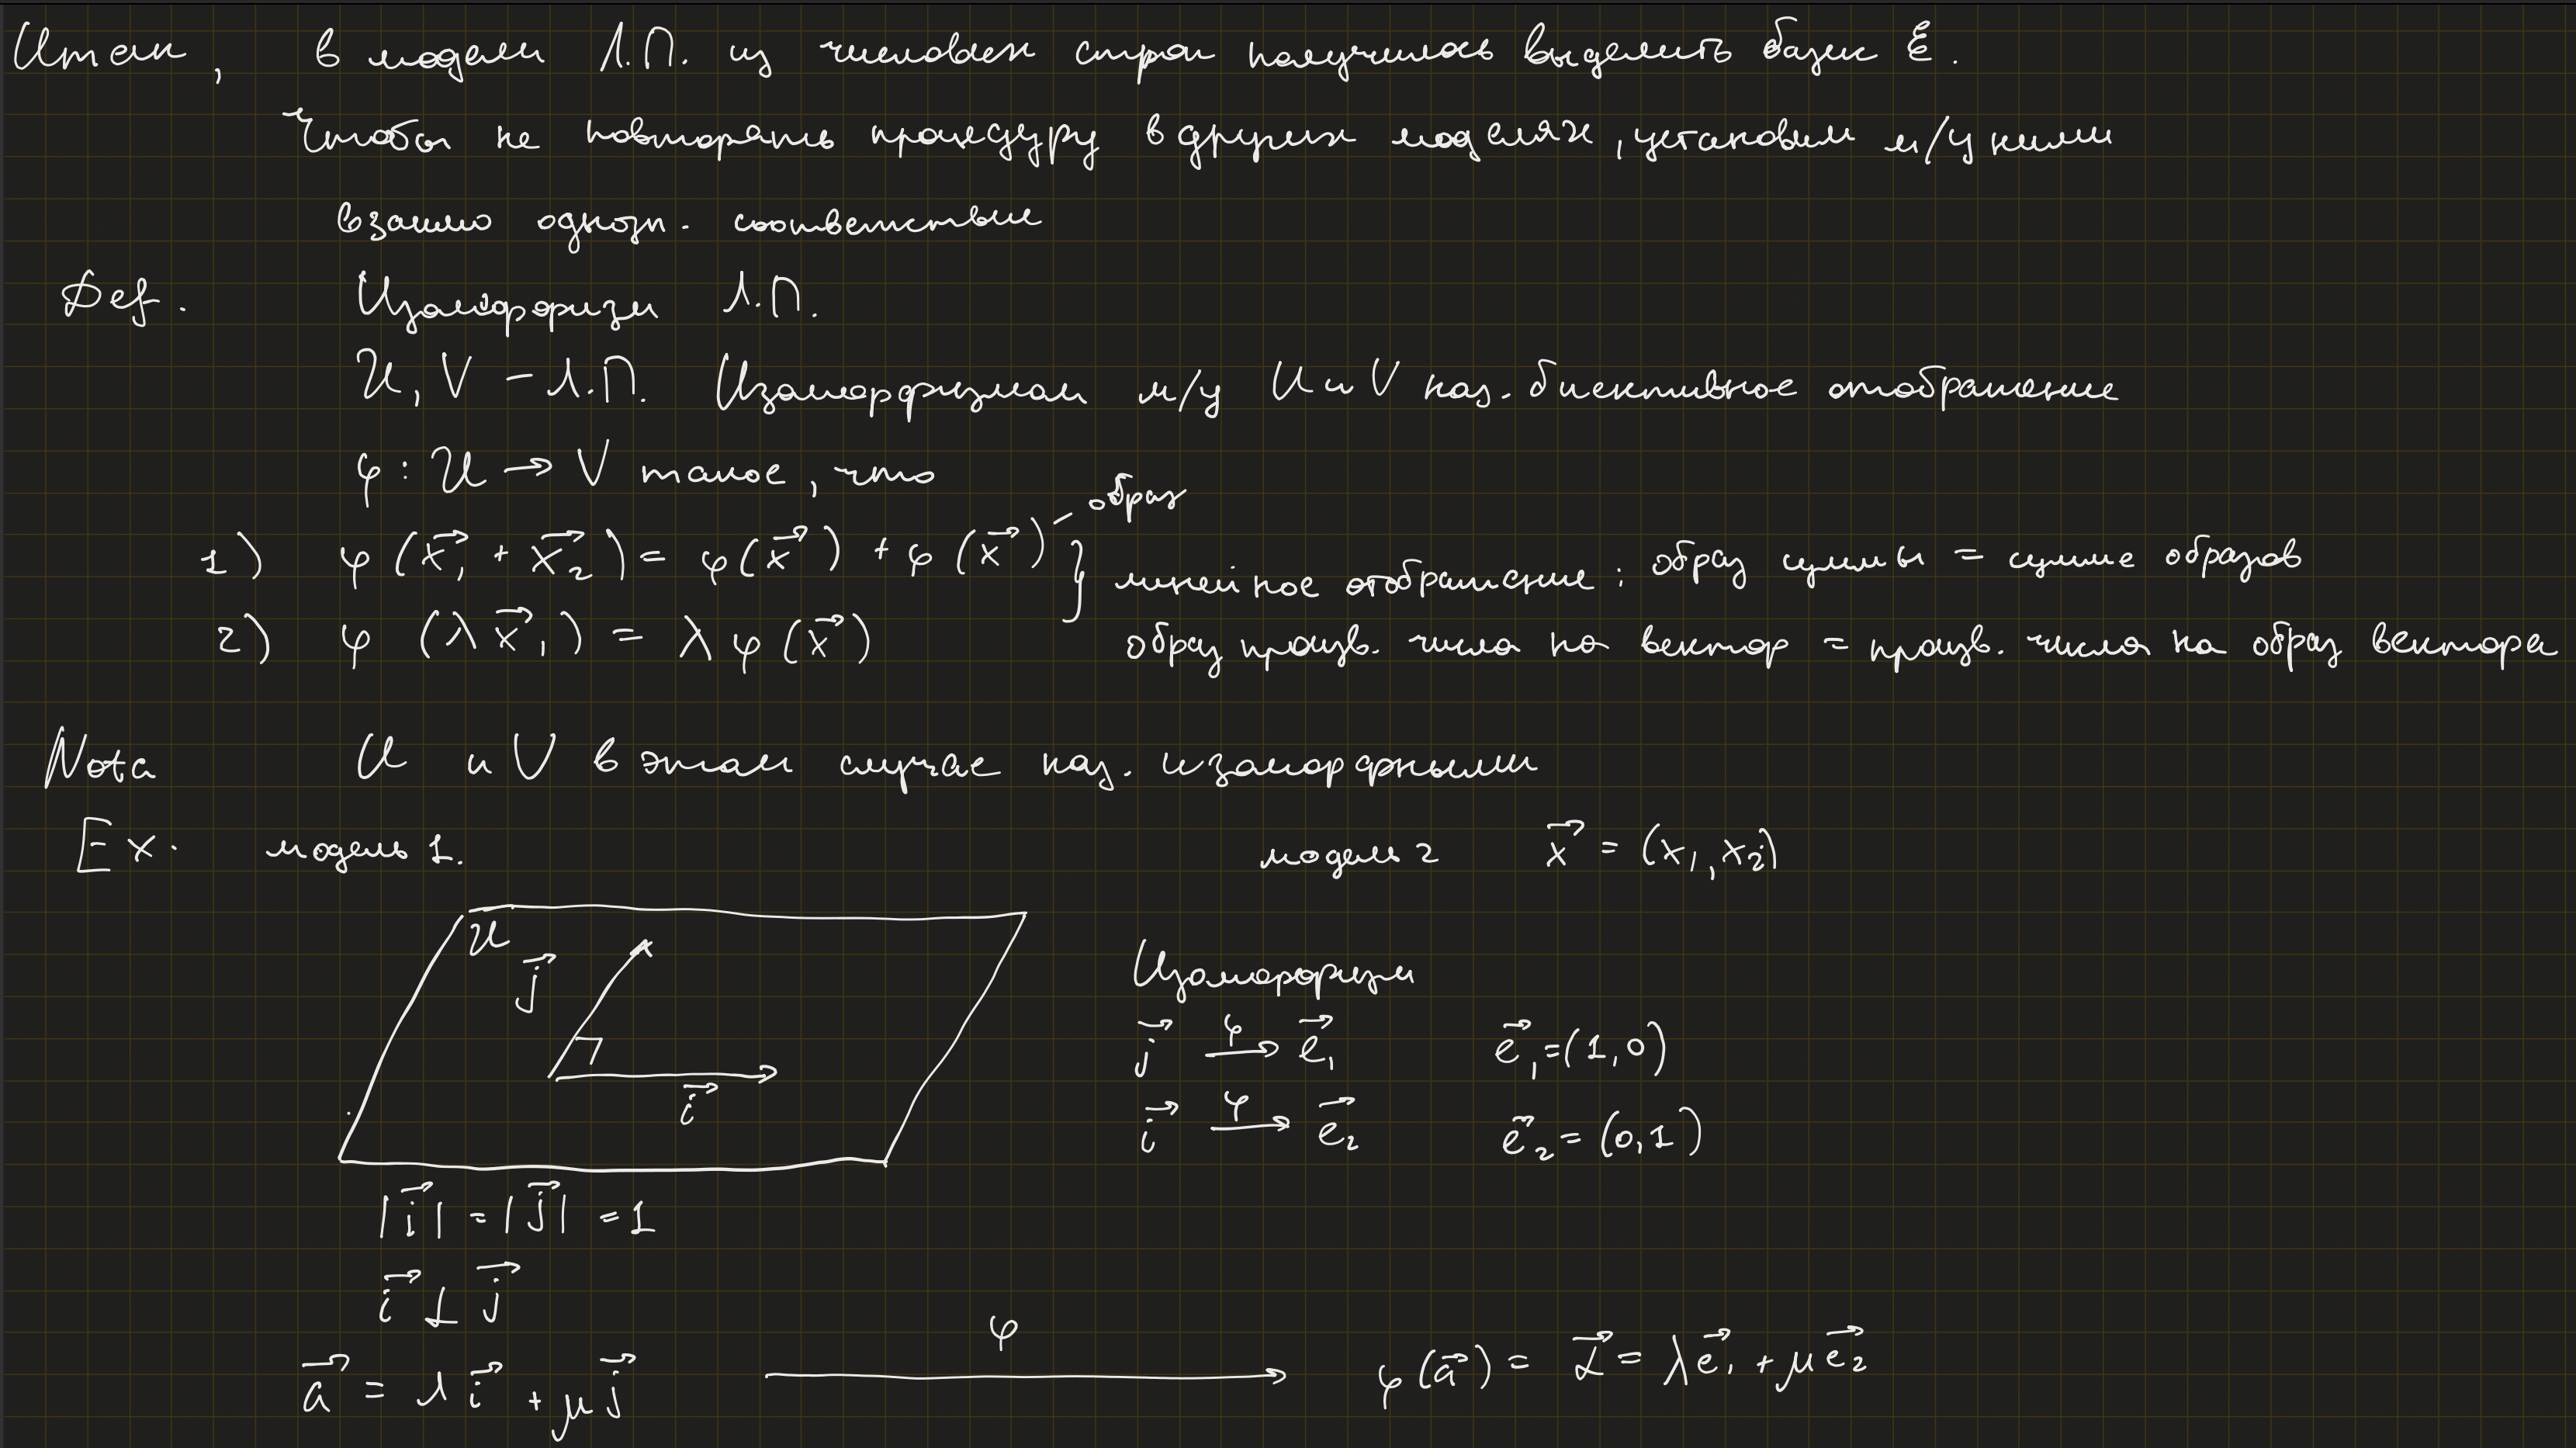 Итак, в модели Л.П. из числовых строк получилось выделить базис ℰ.
Чтобы не повторять процедуру в других моделях, установим м/у ними
взаимо однозн. соответствие
Def. Изоморфизм Л.П.
U, V – Л.П. Изоморфизмом м/у U и V наз. биективное отображение
φ : U → V такое, что
– образ
1) φ(x⃗₁ + x⃗₂) = φ(x⃗) + φ(x⃗) } линейное отображение : образ суммы = сумме образов
2) φ(λx⃗₁) = λφ(x⃗) образ произв. числа на вектор = произв. числа на образ вектора
Nota U и V в этом случае наз. изоморфными
Ex. модель 1. модель 2 x⃗ = (x₁, x₂)
U
j⃗
i⃗
Изоморфизм
j⃗ →φ e⃗₁ e⃗₁ = (1, 0)
i⃗ →φ e⃗₂ e⃗₂ = (0, 1)
|i⃗| = |j⃗| = 1
i⃗ ⊥ j⃗
φ
a⃗ = λi⃗ + μj⃗ → φ(a⃗) = α⃗ = λe⃗₁ + μe⃗₂